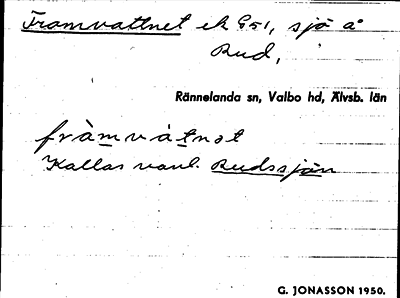 Framvattnet ek 951, sjö å
Rud,
Rännelanda sn, Valbo hd, Älvsb. län
fràmvátnət
Kallas vanl. Rudssjön
G. JONASSON 1950.